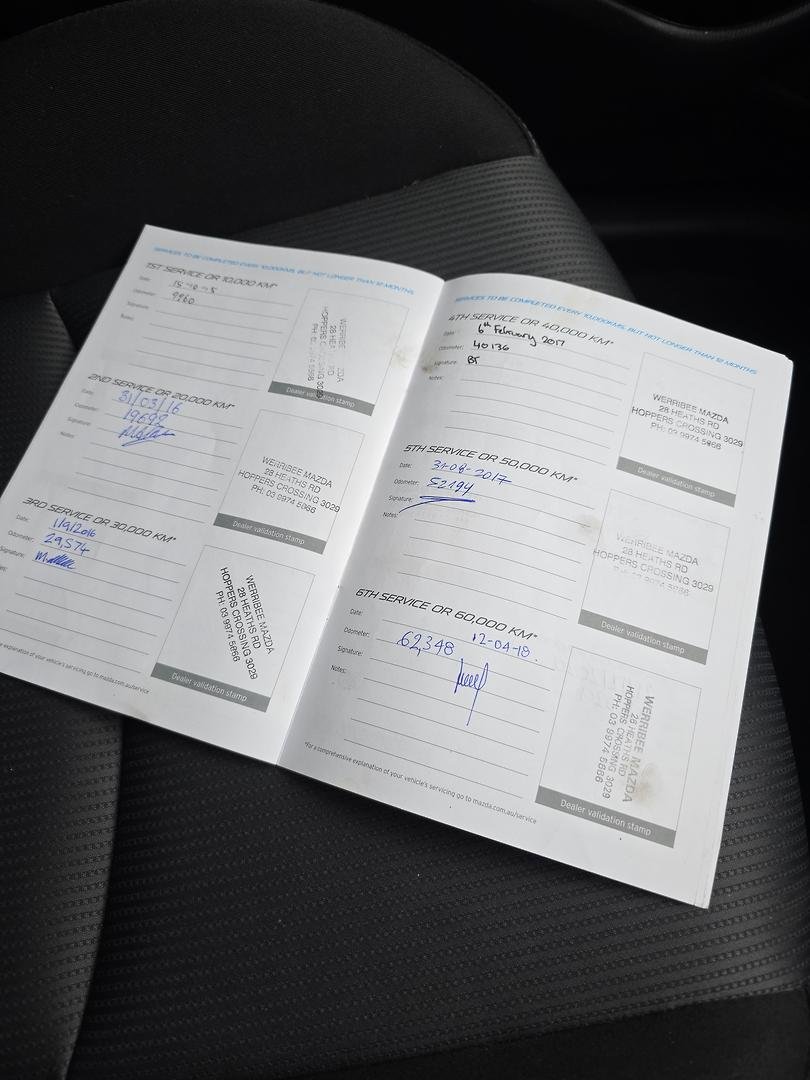 SERVICES TO BE COMPLETED EVERY 10,000KMS, BUT NOT LONGER THAN 12 MONTHS
1ST SERVICE OR 10,000 KM*
Date:
Odometer: 9960
Signature:
Notes:
WERRIBEE
HOPPERS CROSSING 3029
Dealer validation stamp
2ND SERVICE OR 20,000 KM*
Date: 31/03/16
Odometer: 19692
Signature:
Notes:
WERRIBEE MAZDA
28 HEATHS RD
HOPPERS CROSSING 3029
PH: 03 9974 5666
Dealer validation stamp
3RD SERVICE OR 30,000 KM*
Date: 1/9/2016
Odometer: 29,574
Signature:
WERRIBEE MAZDA
28 HEATHS RD
HOPPERS CROSSING 3029
PH: 03 9974 5666
Dealer validation stamp
explanation of your vehicle's servicing go to mazda.com.au/service
SERVICES TO BE COMPLETED EVERY 10,000KMS, BUT NOT LONGER THAN 12 MONTHS
4TH SERVICE OR 40,000 KM*
Date: 6th February 2017
Odometer: 40136
Signature: BT
Notes:
WERRIBEE MAZDA
28 HEATHS RD
HOPPERS CROSSING 3029
PH: 03 9974 5666
Dealer validation stamp
5TH SERVICE OR 50,000 KM*
Date: 31-08-2017
Odometer: 52194
Signature:
Notes:
WERRIBEE MAZDA
28 HEATHS RD
HOPPERS CROSSING 3029
PH: 03 9974 5666
Dealer validation stamp
6TH SERVICE OR 60,000 KM*
Date: 12-04-18.
Odometer: 62,348
Signature:
Notes:
WERRIBEE MAZDA
28 HEATHS RD
HOPPERS CROSSING 3029
PH: 03 9974 5666
Dealer validation stamp
*For a comprehensive explanation of your vehicle's servicing go to mazda.com.au/service